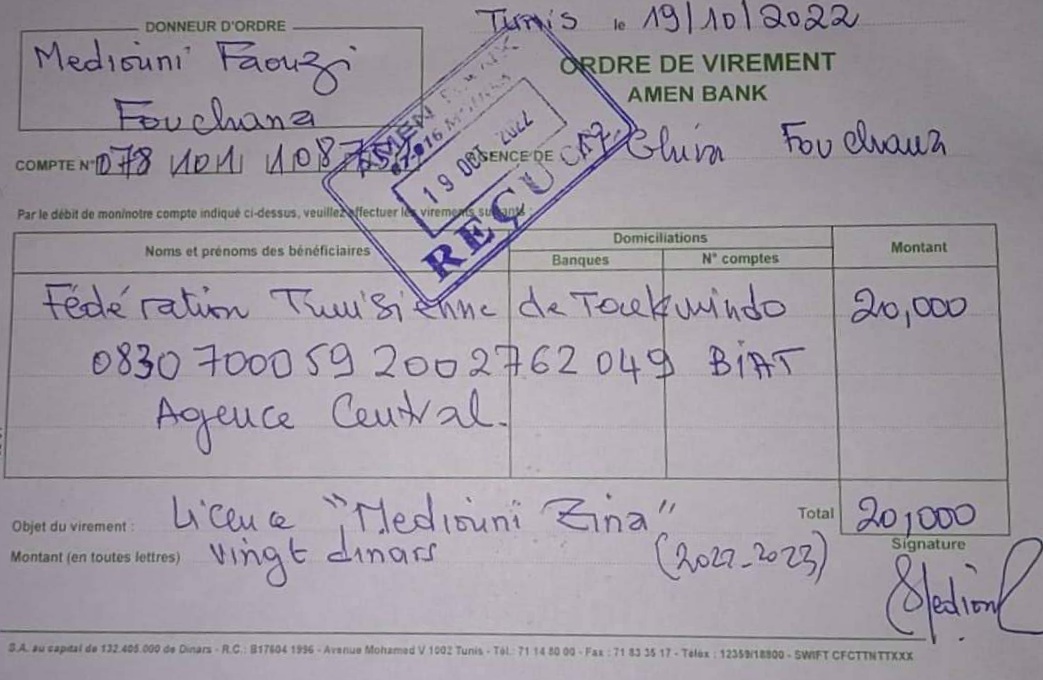 Tunis le 19/10/2022
DONNEUR D'ORDRE
Mediouni Faouzi
Fouchana
ORDRE DE VIREMENT
AMEN BANK
COMPTE N° 078 101 1087
AGENCE DE Ghira Fouchana
AMEN BANK
19 OCT 2022
REÇU
Par le débit de mon/notre compte indiqué ci-dessus, veuillez effectuer les virements suivants :
Noms et prénoms des bénéficiaires
Domiciliations
Banques
N° comptes
Montant
Fédération Tunisienne de Taekwindo 20,000
0830 7000 59 2002762 049 BIAT
Agence Central.
Objet du virement : Licence "Mediouni Zina"
Total 20,000
Montant (en toutes lettres) vingt dinars (2022-2023)
Signature
S.A. au capital de 132.405.000 de Dinars - R.C.: B17604 1996 - Avenue Mohamed V 1002 Tunis - Tél.: 71 14 80 00 - Fax : 71 83 35 17 - Télex : 12359/18800 - SWIFT CFCTTNTTXXX